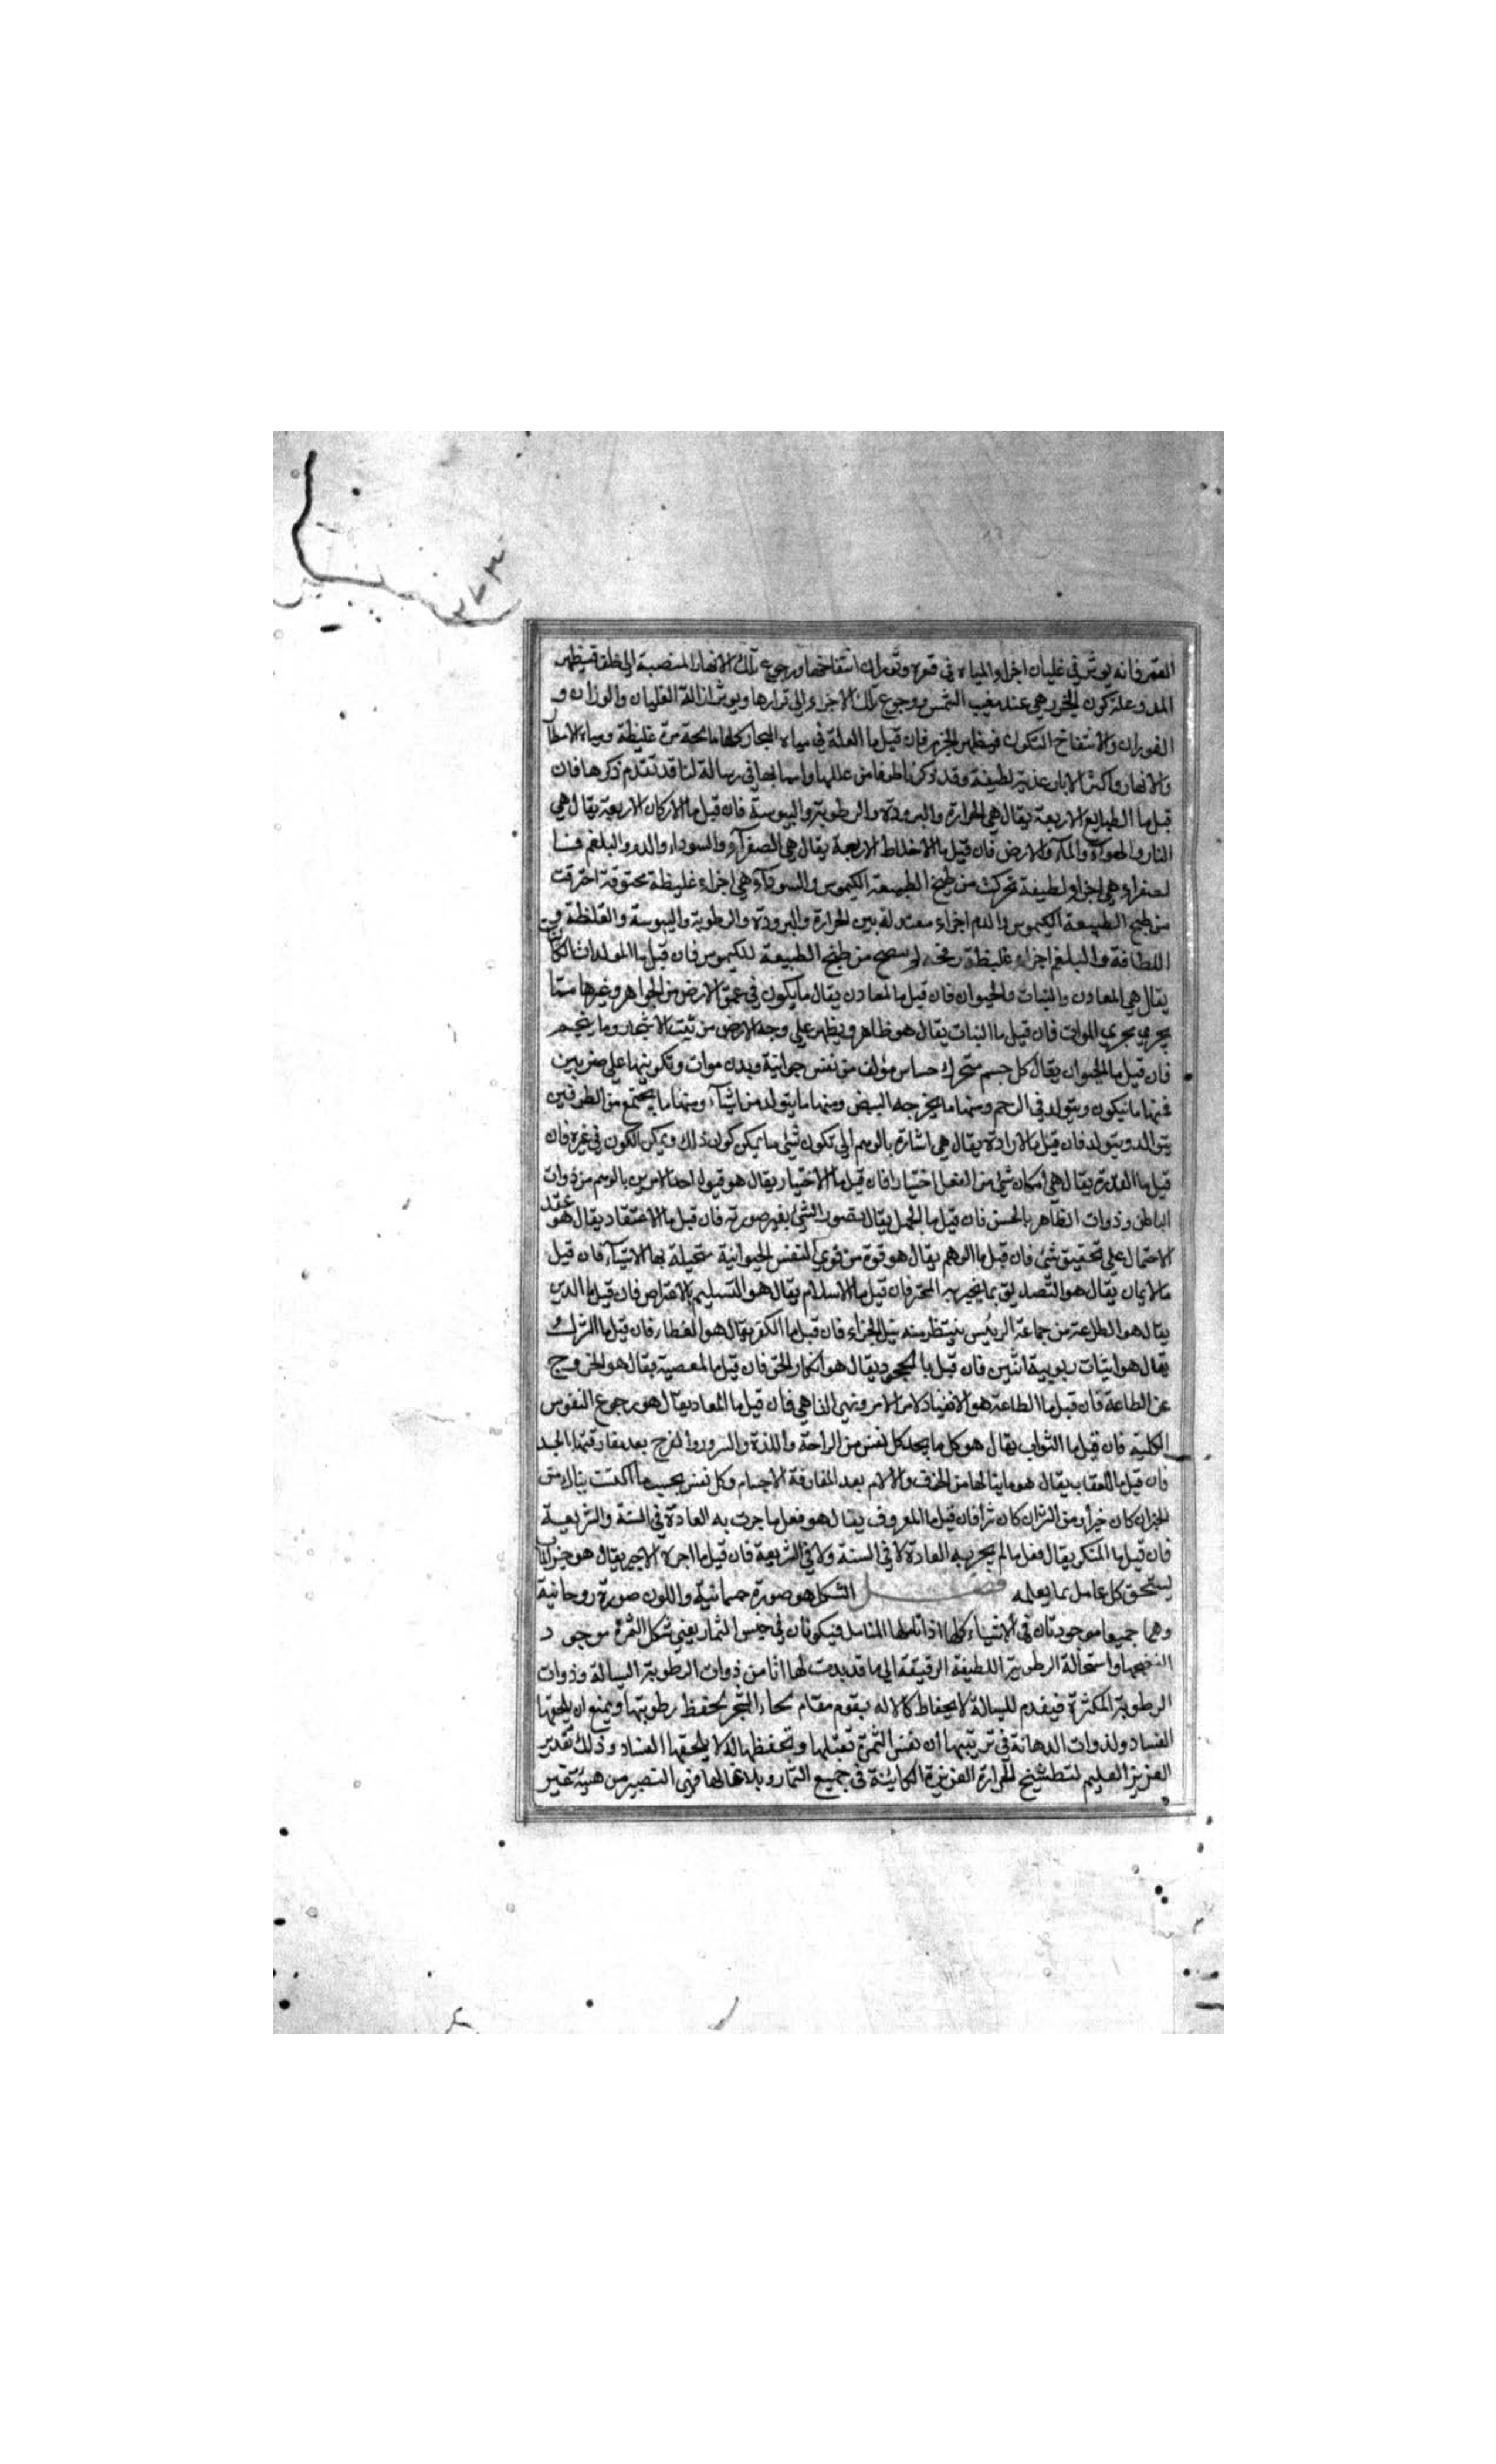 ٢٧٣
القمر فانه يوثر في غليان اجزاء المياه في قعره وثوران انتفاخها ورجوع تلك الانهار المنصبة الى خلف فيظهر
المد وعلة كون الجزر هي عند مغيب الشمس ورجوع تلك الاجزاء الى قرارها ويوثر ازالة الغليان والوزان و
الفوران والانتفاخ السكون فيظهر الجزر فان قيل ما العلة في مياه البحار كلها مالحة مرة غليظة ومياه الامطار
والانهار واكثر الابار عذبة لطيفة وقد ذكرنا طرفا من عللها واسبابها في رسالة لنا قد تقدم ذكرها فان
قيل ما الطبايع الاربعة يقال هي الحرارة والبرودة والرطوبة واليبوسة فان قيل ما الاركان الاربعة يقال هي
النار والهوآء والمآء والارض فان قيل ما الاخلاط الاربعة يقال هي الصفرآء والسوداء والدم والبلغم فا
لصفراء هي اجزاء لطيفة تحركت من طبخ الطبيعة الكيموس والسودآء هي اجزاء غليظة محترقة احترقت
من طبخ الطبيعة الكيموس والدم اجزاء معتدلة بين الحرارة والبرودة والرطوبة واليبوسة والغلظة و
اللطافة والبلغم اجزاء غليظة من طبخ الطبيعة للكيموس فان قيل ما المولدات الكائنات
يقال هي المعادن والنبات والحيوان فان قيل ما المعادن يقال ما يكون في عمق الارض من الجواهر وغيرها مما
يجري مجري الموات فان قيل ما النبات يقال هو ظاهر ويظهر علي وجه الارض من نبت الاشجار وما ينجم
فان قيل ما الحيوان يقال كل جسم متحرك حساس مؤلف من نفس حيوانية وبدن موات وتكوينها علي ضربين
فمنها ما يتكون ويتولد في الرحم ومنها ما يخرجه البيض ومنها ما يتولد من اشيآء ومنها ما يجتمع من الطرفين
يتوالد ويتولد فان قيل ما الارادة يقال هي اشارة بالوهم الي تكون شئ ما يمكن كون ذلك ويمكن الكون في غيره فان
قيل ما القدرة يقال هي امكان شئ من الفعل اختيارا فان قيل ما الاختيار يقال هو قبول احد الامرين بالوهم من ذوات
الباطن وذوات الظاهر بالحس فان قيل ما الجهل يقال تصور الشئ بغير صورته فان قيل ما الاعتقاد يقال هو عقد
الاحتمال علي تحقيق شئ فان قيل ما الوهم يقال هو قوة من قوي النفس الحيوانية متخيلة بها الاشيآء فان قيل
ما الايمان يقال هو التصديق بما يخبر به المخبر فان قيل ما الاسلام يقال هو التسليم بلا اعتراض فان قيل ما الدين
يقال هو الطاعة من جماعة الرئيس ينتظر منه نيل الجزاء فان قيل ما الكفر يقال هو الغطا فان قيل ما الشرك
يقال هو اثبات ربوبية اثنين فان قيل ما الجحود يقال هو انكار الحق فان قيل ما المعصية يقال هو الخروج
عن الطاعة فان قيل ما الطاعة هو الانقياد لامر الامر ونهي الناهي فان قيل ما المعاد يقال هو رجوع النفوس
الكلية فان قيل ما الثواب يقال هو كل ما يجد كل نفس من الراحة واللذة والسرور والفرح بعد مفارقتها الجسد
فان قيل ما العقاب يقال هو ما ينالها من الخوف والالام بعد المفارقة الاجسام وكل نفس بحسب ما اكتسبت ينال من
الخير ان كان خيرا ومن الشر ان كان شرا فان قيل ما المعروف يقال هو فعل ما جرت به العادة في السنة والشريعة
فان قيل ما المنكر يقال فعل ما لم يجر به العادة لا في السنة ولا في الشريعة فان قيل ما اجرة الاجير يقال هو جزاء
يستحق كل عامل بما يعلمه فصل الشكل هو صورة جسمانية واللون صورة روحانية
وهما جميعا موجودتان في الاشياء كلها اذا تاملها المتامل فيكونان في جنس الثمار يعني شكل الثمرة موجود
لنضجها واستحالة الرطوبة اللطيفة الرقيقة الي ما قد بدت لها من ذوات الرطوبة السيالة وذوات
الرطوبة المكثرة فيقدم للسيالة يقوم مقام لحاء الشجر لحفظ رطوبتها ويمنع ان يلحقها
الفساد ولذوات الدهانة في تربيتها ان نفس الثمرة تقبلها وتحفظها لئلا يلحقها الفساد وذلك تقدير
العزيز العليم الحرارة الغزيزة الكاينة في جميع الثمار من هيئة غير